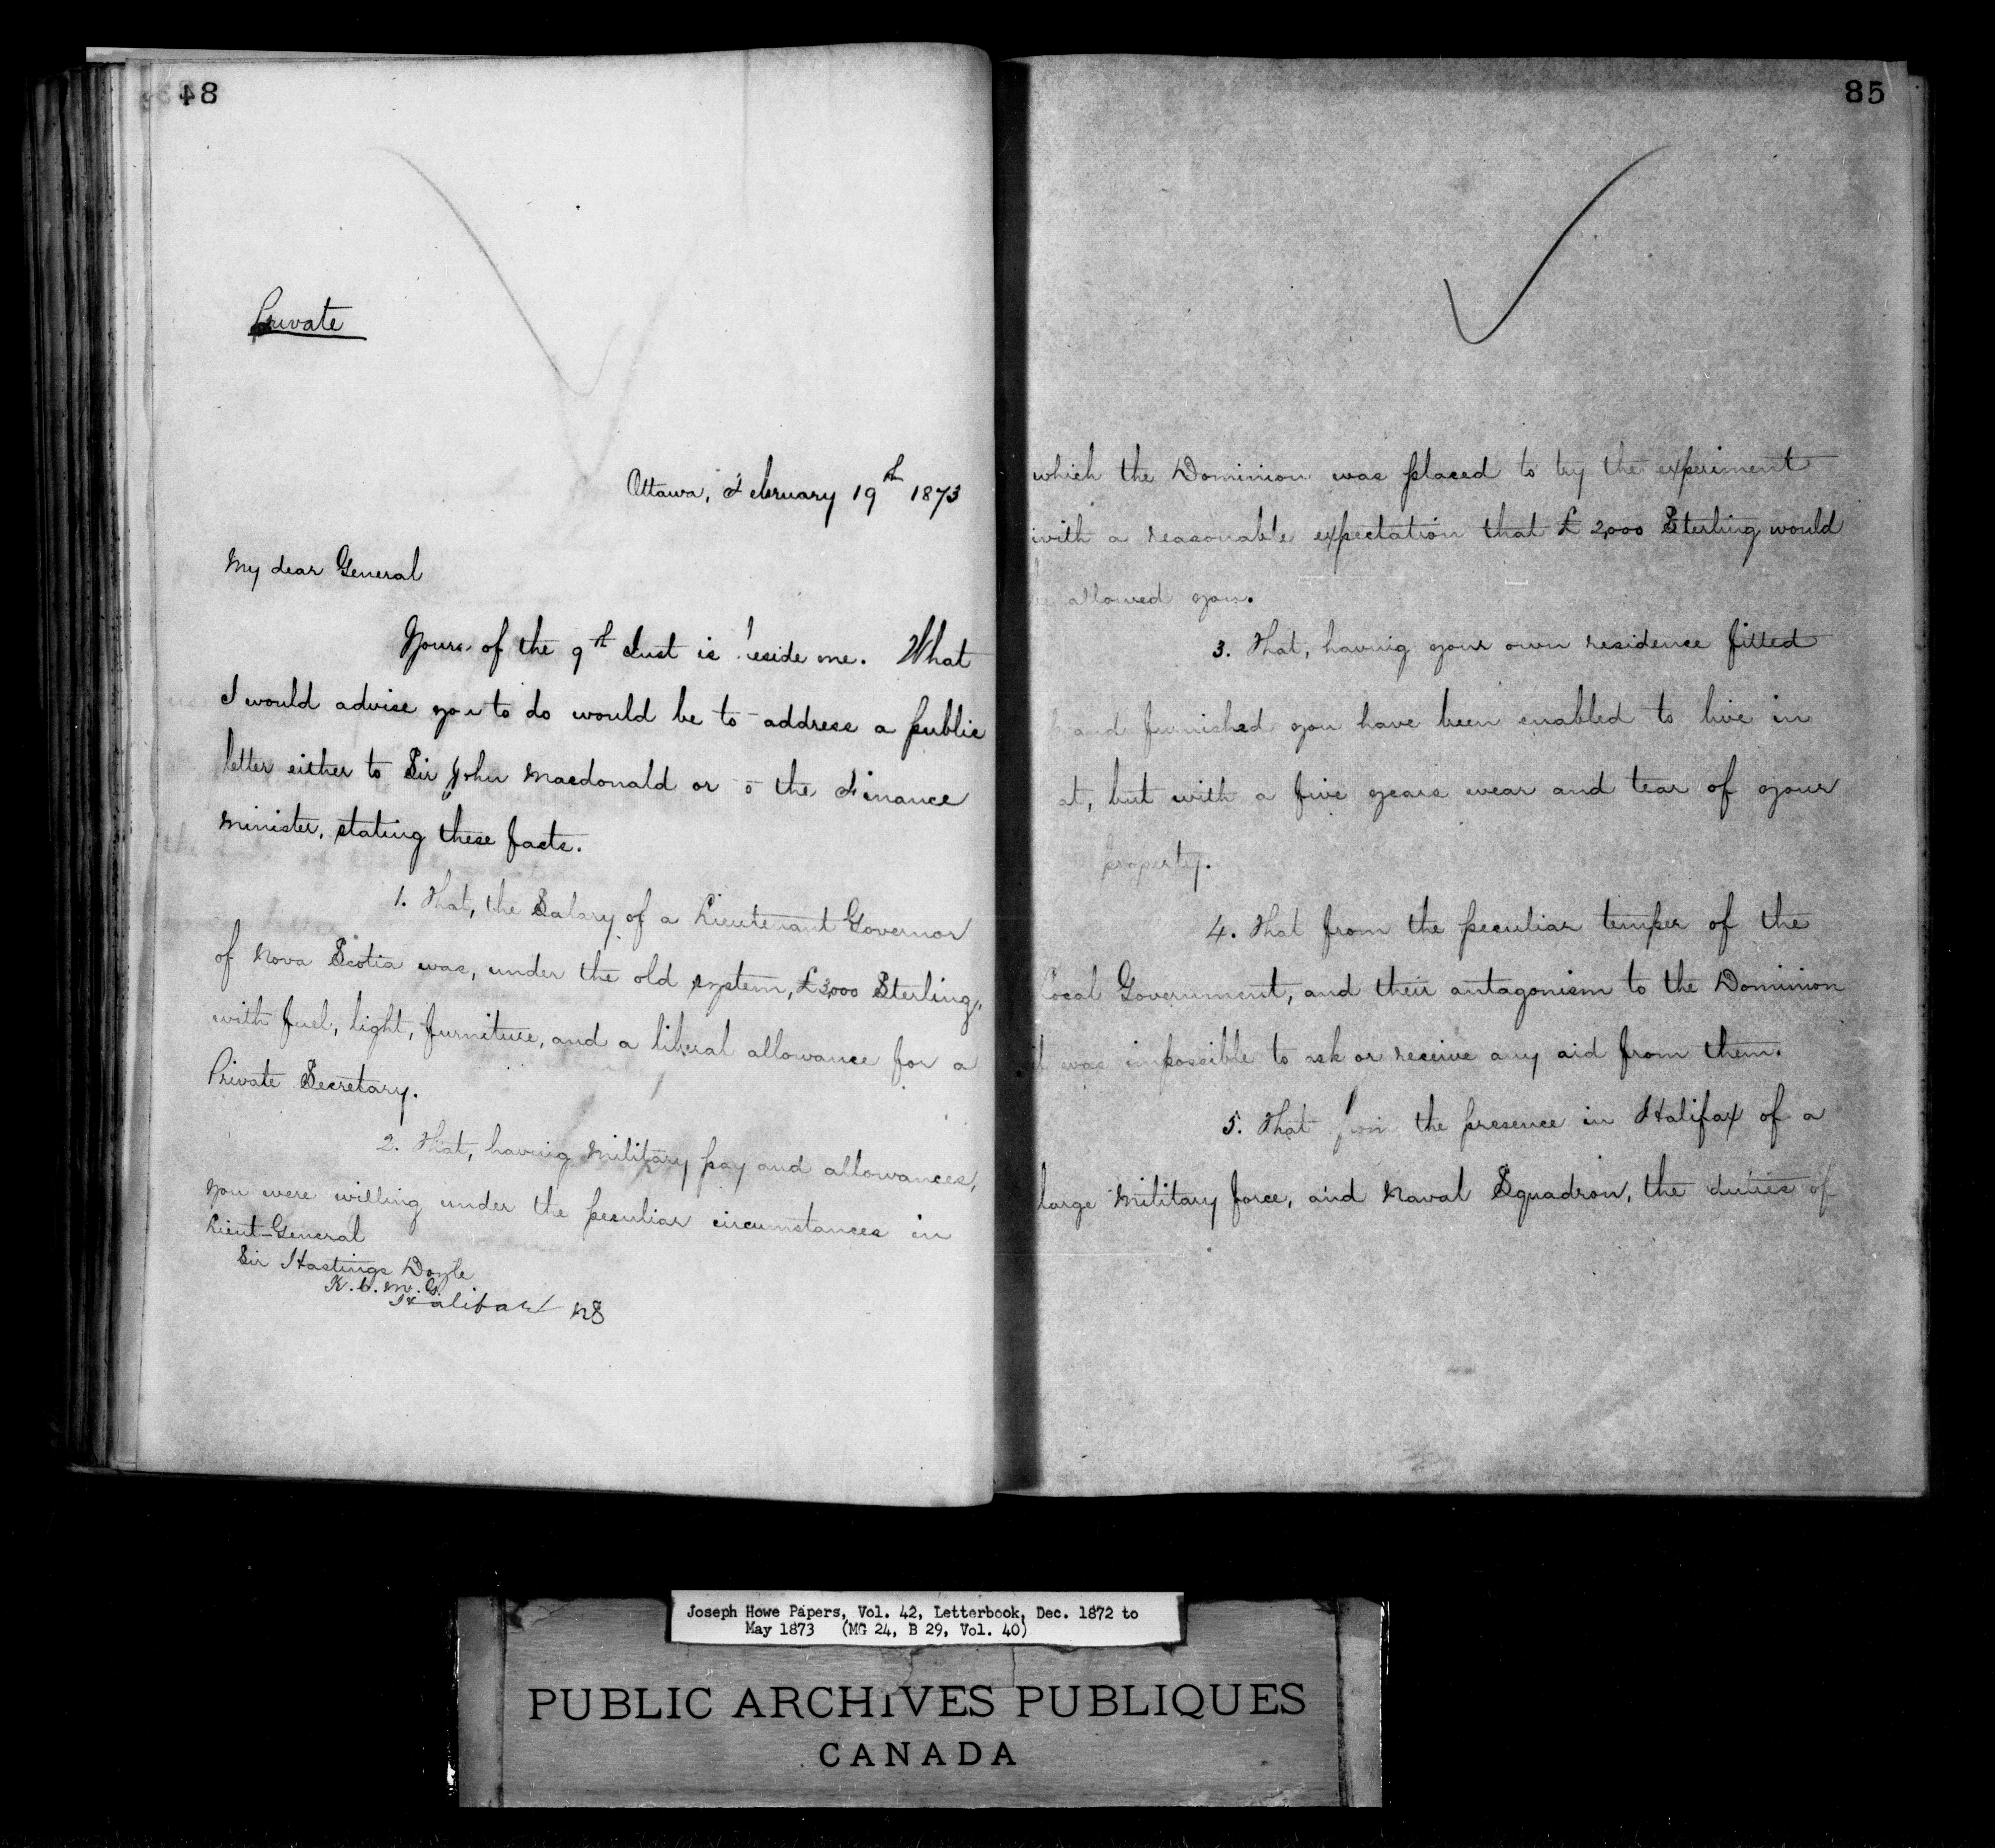 84
Private
Ottawa, February 19th 1873
My dear General
Yours of the 9th Inst is beside me. What
I would advise you to do would be to address a public
letter either to Sir John Macdonald or to the Finance
Minister, stating these facts.
1. That, the Salary of a Lieutenant Governor
of Nova Scotia was, under the old system, £3,000 Sterling,
with fuel, light, furniture, and a liberal allowance for a
Private Secretary.
2. That, having Military pay and allowances,
you were willing under the peculiar circumstances in
Lieut-General
Sir Hastings Doyle
K.C.M.G.
Halifax NS
85
which the Dominion was placed to try the experiment
with a reasonable expectation that £2,000 Sterling would
be allowed you.
3. That, having your own residence fitted
and furnished you have been enabled to live in
it, but with a five years wear and tear of your
property.
4. That from the peculiar temper of the
Local Government, and their antagonism to the Dominion
it was impossible to ask or receive any aid from them.
5. That from the presence in Halifax of a
large Military force, and Naval Squadron, the duties of
Joseph Howe Papers, Vol. 42, Letterbook, Dec. 1872 to
May 1873 (MG 24, B 29, Vol. 40)
PUBLIC ARCHIVES PUBLIQUES
CANADA